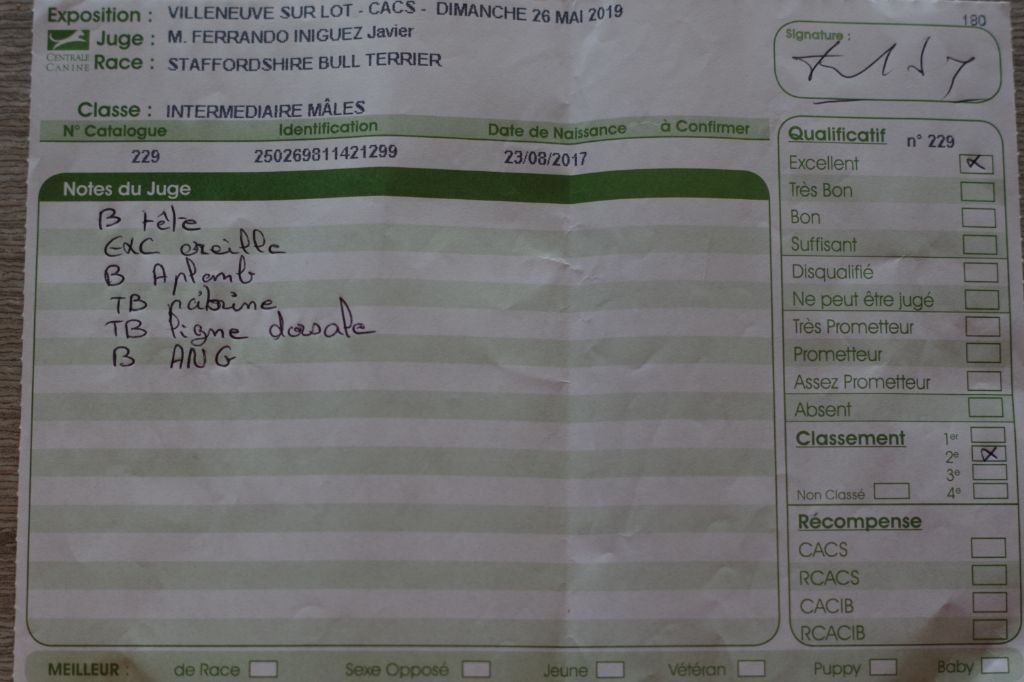 Exposition : VILLENEUVE SUR LOT - CACS - DIMANCHE 26 MAI 2019
180
Juge : M. FERRANDO INIGUEZ Javier
CENTRALE CANINE
Race : STAFFORDSHIRE BULL TERRIER
Signature :
Classe : INTERMEDIAIRE MÂLES
N° Catalogue Identification Date de Naissance à Confirmer
229 250269811421299 23/08/2017
Notes du Juge
B tête
EXC oreille
B Aplomb
TB poitrine
TB ligne dorsale
B ANG
Qualificatif n° 229
Excellent X
Très Bon
Bon
Suffisant
Disqualifié
Ne peut être jugé
Très Prometteur
Prometteur
Assez Prometteur
Absent
Classement 1er
2e X
3e
Non Classé 4e
Récompense
CACS
RCACS
CACIB
RCACIB
MEILLEUR : de Race Sexe Opposé Jeune Vétéran Puppy Baby